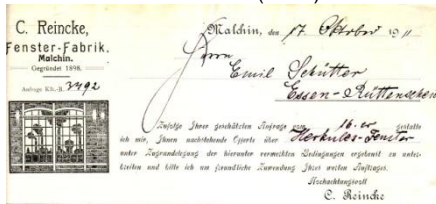 C. Reincke,
Fenster-Fabrik,
Malchin.
Gegründet 1898.
Anfrage Kb.-B. 3492
Malchin, den 17 Oktober 1911
Herrn
Emil Schütter
Essen-Rüttenscheid
Zufolge Ihrer geschätzten Anfrage vom 16. cr gestatte
ich mir, Ihnen nachstehende Offerte über Herkules-Fenster
unter Zugrundelegung der hierunter vermerkten Bedingungen ergebenst zu unter-
breiten und bitte ich um freundliche Zuwendung Ihres werten Auftrages.
Hochachtungsvoll
C. Reincke